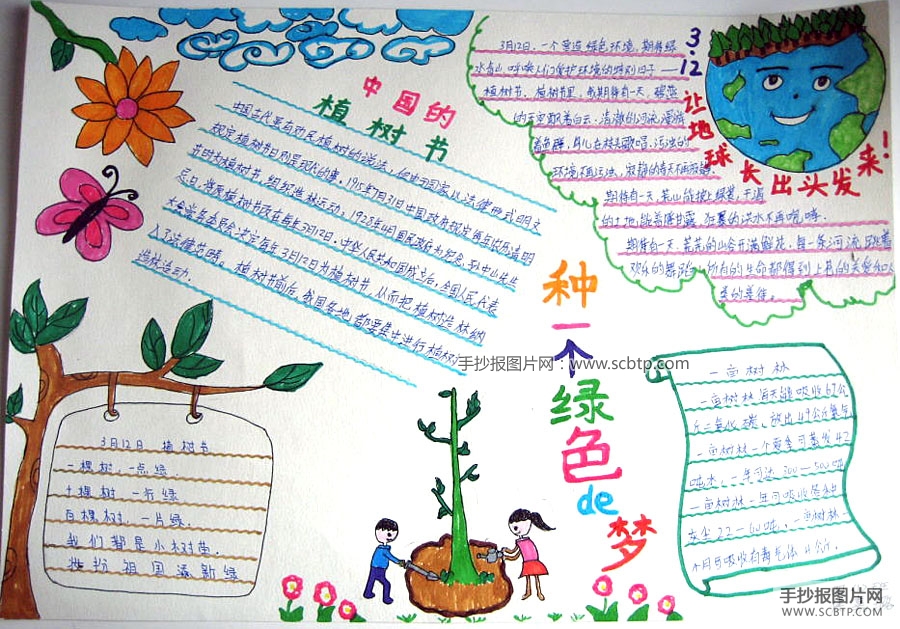 中国的
植树节
中国古代素有动员植树的说法，但由于国家以法律形式明文
规定植树节日则是现代的事，1915年7月31日中国政府规定每年农历清明
节时为植树节，组织造林运动，1928年4月国民政府为纪念孙中山先生
忌日，将原植树节改在每年3月12日。中华人民共和国成立后，全国人民代表
大会常务委员会决定每年3月12日为植树节，从而把植树造林纳
入了法律范畴。植树节前后，我国各地都要集中进行植树
造林活动。
3.12
让地球长出头发来！
3月12日，一个营造绿色环境，期待绿
水青山，呼唤人们保护环境的特别日子——
植树节。植树节里，我期待有一天，碧蓝
的天空飘着白云，清澈的河流漫游
着鱼群，鸟儿在枝头歌唱，污浊的
环境不再污浊，寂静的春天不再寂静。
期待有一天，荒山能披上绿装，干涸
的土地能喜降甘露，狂暴的洪水不再咆哮。
期待有一天，荒芜的山会开满鲜花，每一条河流跳着
欢乐的舞蹈，所有的生命都得到上帝的关爱和人
类的善待。
种一个绿色de梦
手抄报图片网：www.scbtp.com
3月12日 植树节
一棵树，一点绿，
十棵树 一行绿
百棵树，一片绿，
我们都是小树苗，
打扮祖国添新绿
一亩树林
一亩树林每天能吸收67公
斤二氧化碳，放出49公斤氧气
一亩树林一个夏季可蒸发42
吨水，一年可达300—500吨
一亩树林一年可吸收各种
灰尘22—60吨，一亩树林一
个月可吸收有毒气体4公斤。
手抄报图片网
WWW.SCBTP.COM